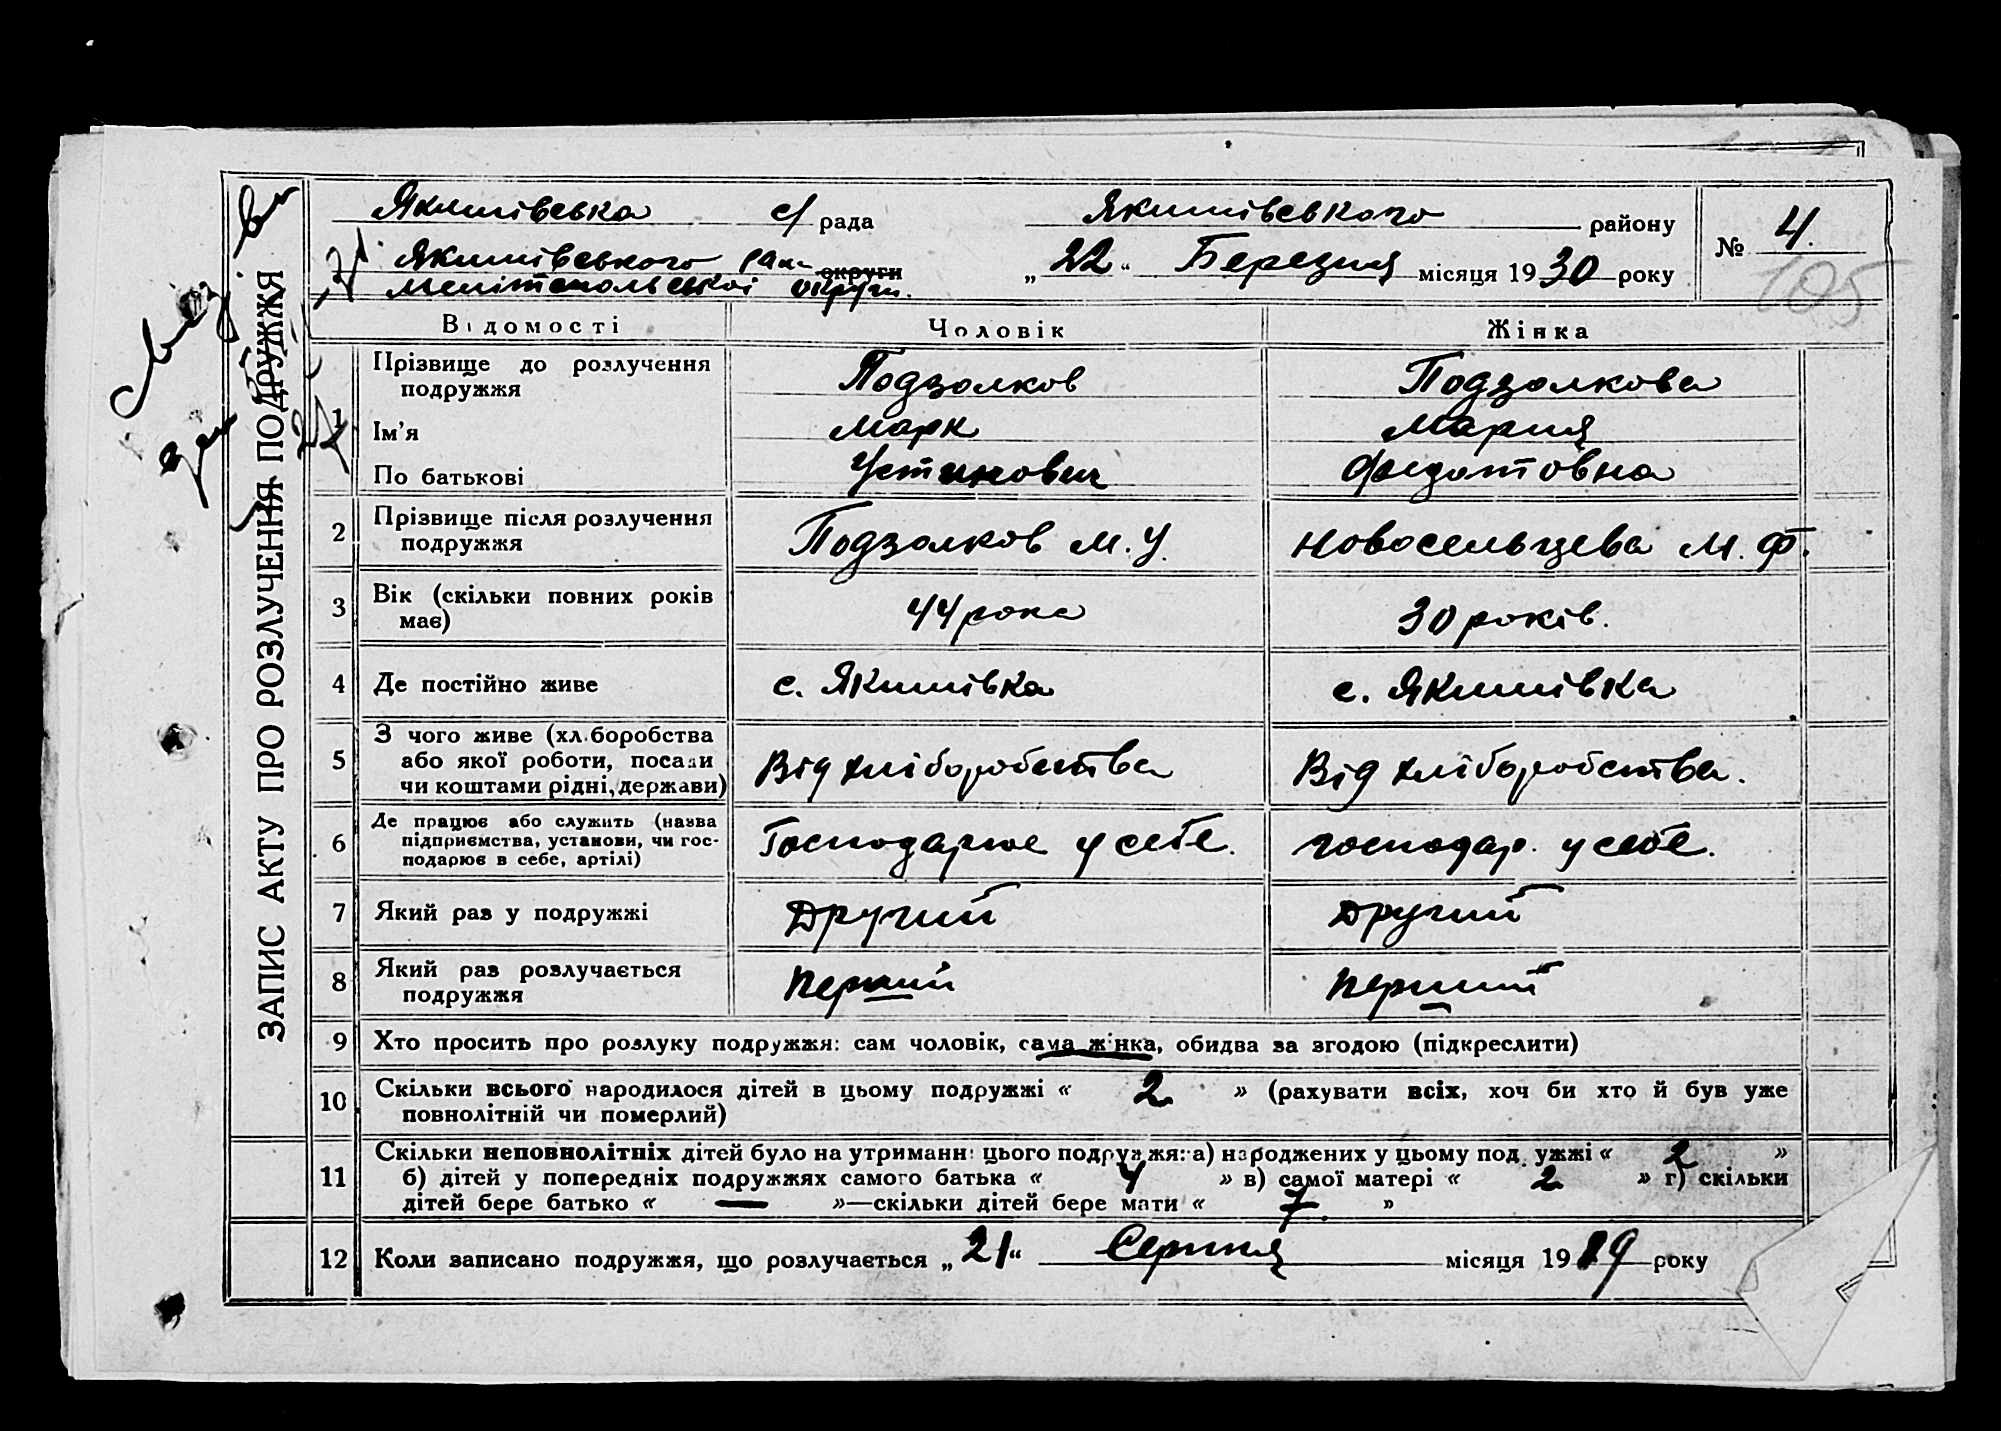 ЗАПИС АКТУ ПРО РОЗЛУЧЕННЯ ПОДРУЖЖЯ
Якимівська с/ рада Якимівського району
Якимівського округи
Мелітопольської округи.
„ 22 “ Березня місяця 1930 року
№ 4.
105
Відомості Чоловік Жінка
1 Прізвище до розлучення подружжя Подзолков Подзолкова
Ім'я Марк Мария
По батькові Устинович Федотовна
2 Прізвище після розлучення подружжя Подзолков М. У. Новосельцева М. Ф.
3 Вік (скільки повних років має) 44 рока 30 років.
4 Де постійно живе с. Якимівка с. Якимівка
5 З чого живе (хліборобства або якої роботи, посади чи коштами рідні, держави) Від хліборобства Від хліборобства.
6 Де працює або служить (назва підприємства, установи, чи господарює в себе, артілі) Господарює у себе. господар. у себе.
7 Який раз у подружжі Другий Другий
8 Який раз розлучається подружжя Перший Перший
9 Хто просить про розлуку подружжя: сам чоловік, сама жінка, обидва за згодою (підкреслити)
10 Скільки всього народилося дітей в цьому подружжі « 2 » (рахувати всіх, хоч би хто й був уже
повнолітній чи померлий)
11 Скільки неповнолітніх дітей було на утриманні цього подружжя: а) народжених у цьому подружжі « 2 »
б) дітей у попередніх подружжях самого батька « 4 » в) самої матері « 2 » г) скільки
дітей бере батько « — »—скільки дітей бере мати « 7. »
12 Коли записано подружжя, що розлучається „ 21 “ Серпня місяця 19 року